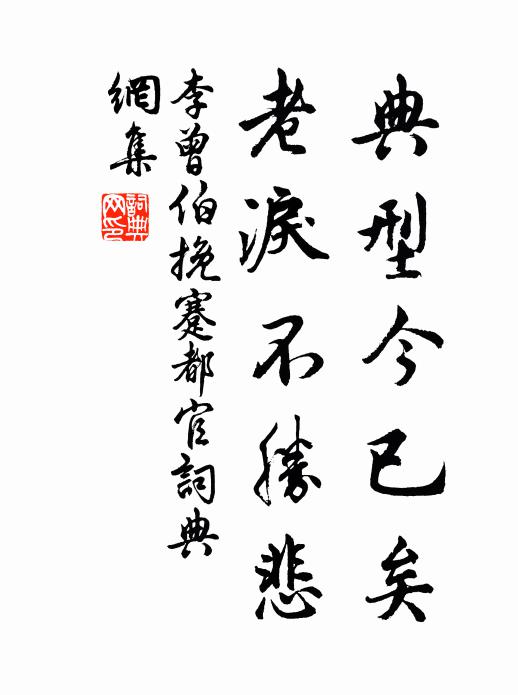 典型今已矣
老淚不勝悲
李曾伯挽蹇都官詞典
網集
詞典網印